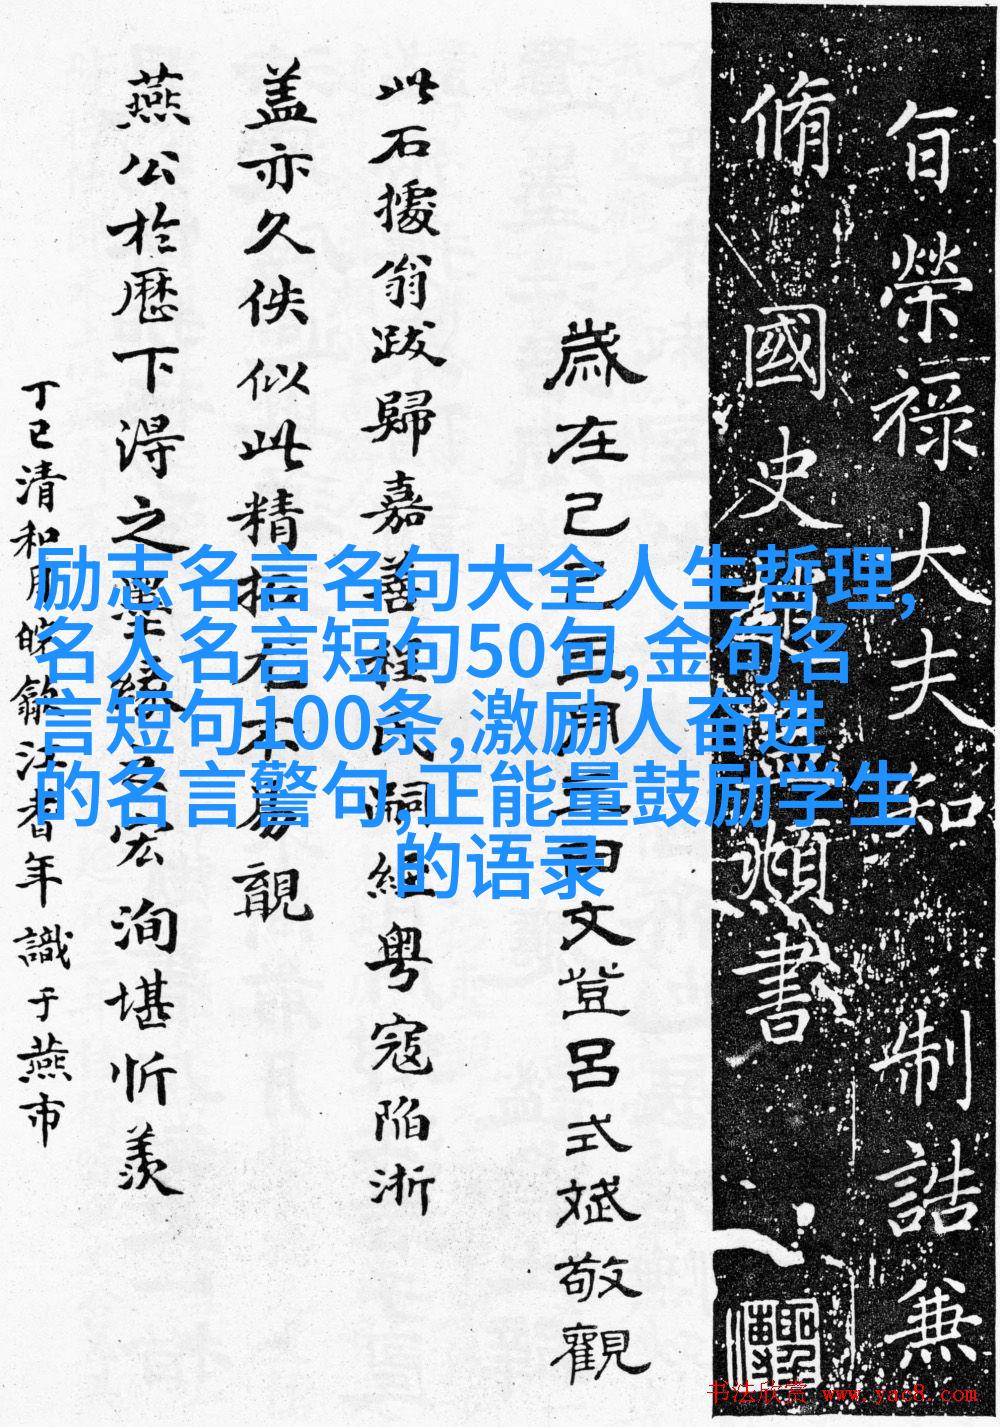 自榮祿大夫知制誥兼
脩國史
頫書
歲在己巳
文登呂式斌敬觀
此石據翁跋歸嘉善程氏嗣經粤寇陷浙
盖亦久佚似此精拓
不易覯
燕公於歷下得之墨緣
洵堪忻羨
丁巳清和月
年識于燕市
励志名言名句大全人生哲理,
名人名言短句50句,金句名
言短句100条,激励人奋进
的名言警句,正能量鼓励学生
的语录
书法欣赏 www.yac8.com